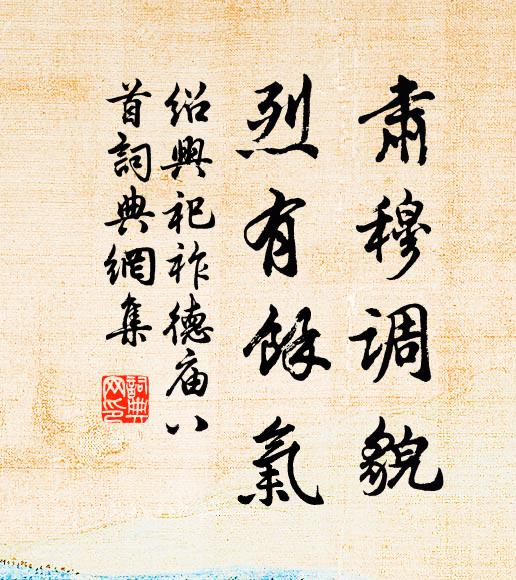 肅穆调貌
烈有餘氣
绍興祀祚德庙八
首詞典網集
詞典网印